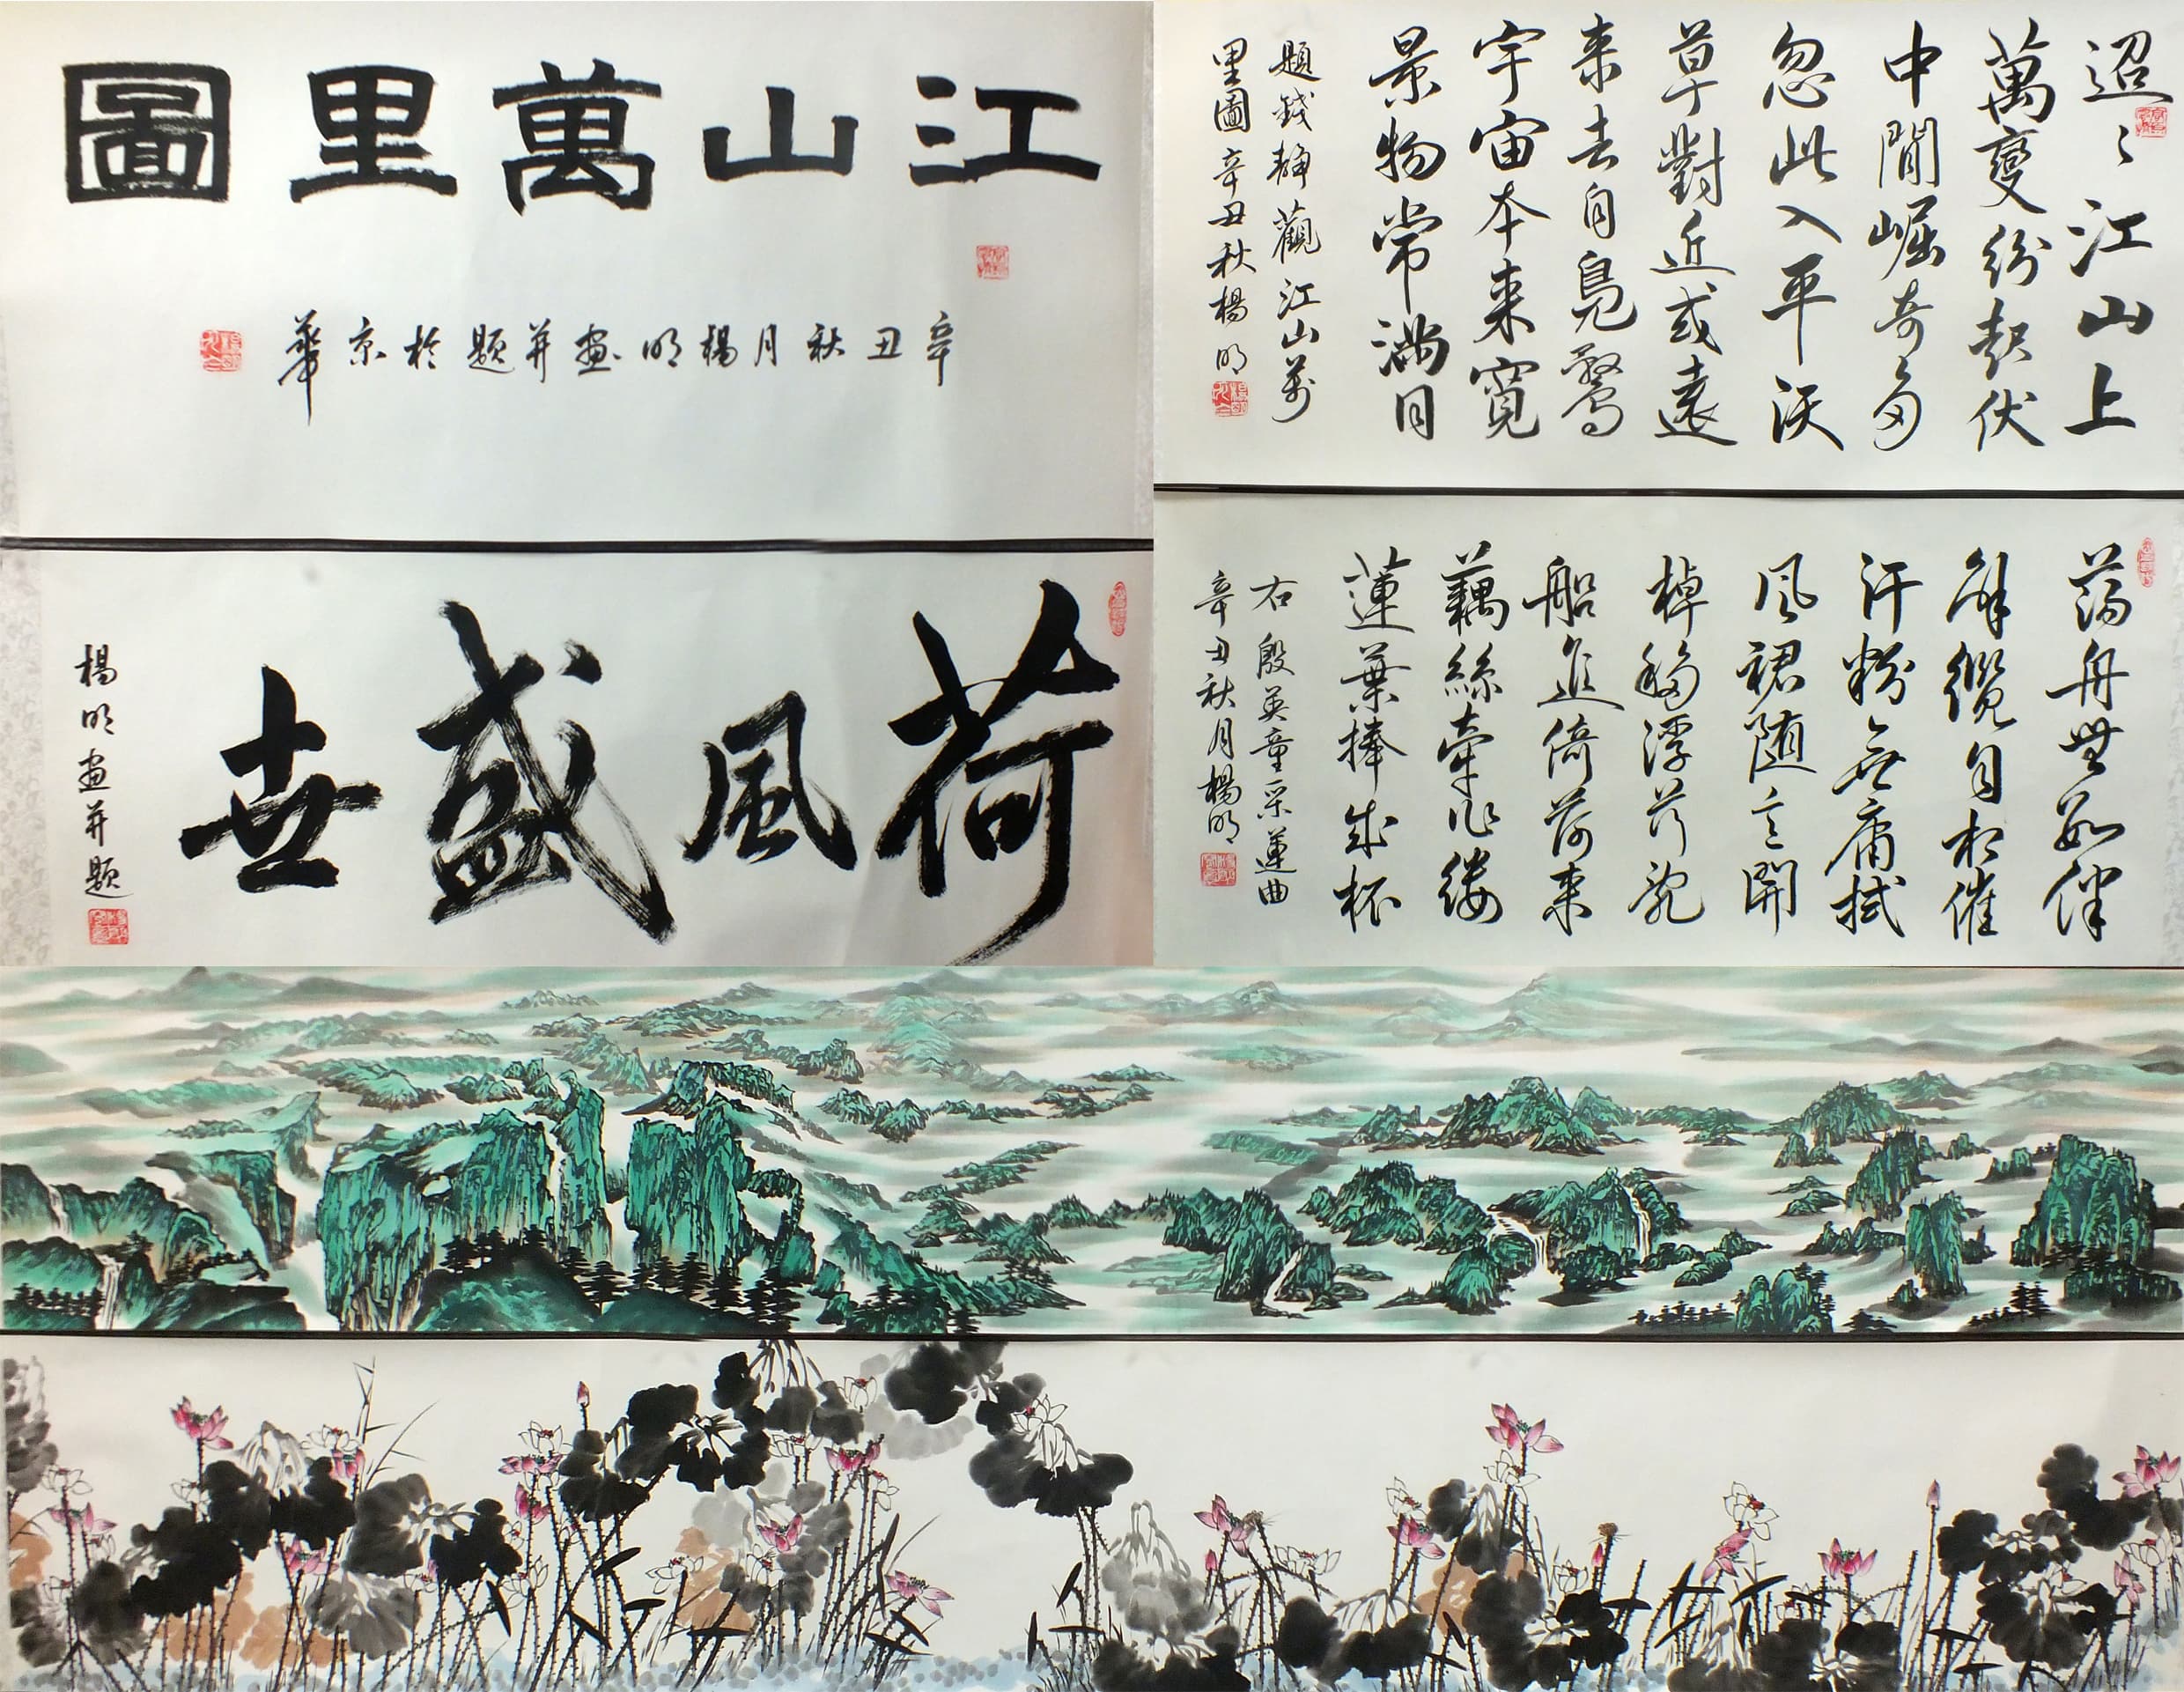 江山萬里圖
辛丑秋月楊明畫并題於京華
迢〻江山上
萬變紛起伏
中間崛奇多
忽此入平沃
草樹近或遠
来去自鳧鶩
宇宙本来寬
景物常滿目
題錢靜觀江山萬
里圖辛丑秋楊明
荷風盛世
楊明畫并題
蕩舟無數伴
解纜自相催
汗粉無庸拭
風裙随意開
棹移浮荇亂
船進倚荷来
藕絲牽作縷
蓮葉捧成杯
右殷英童采蓮曲
辛丑秋月楊明